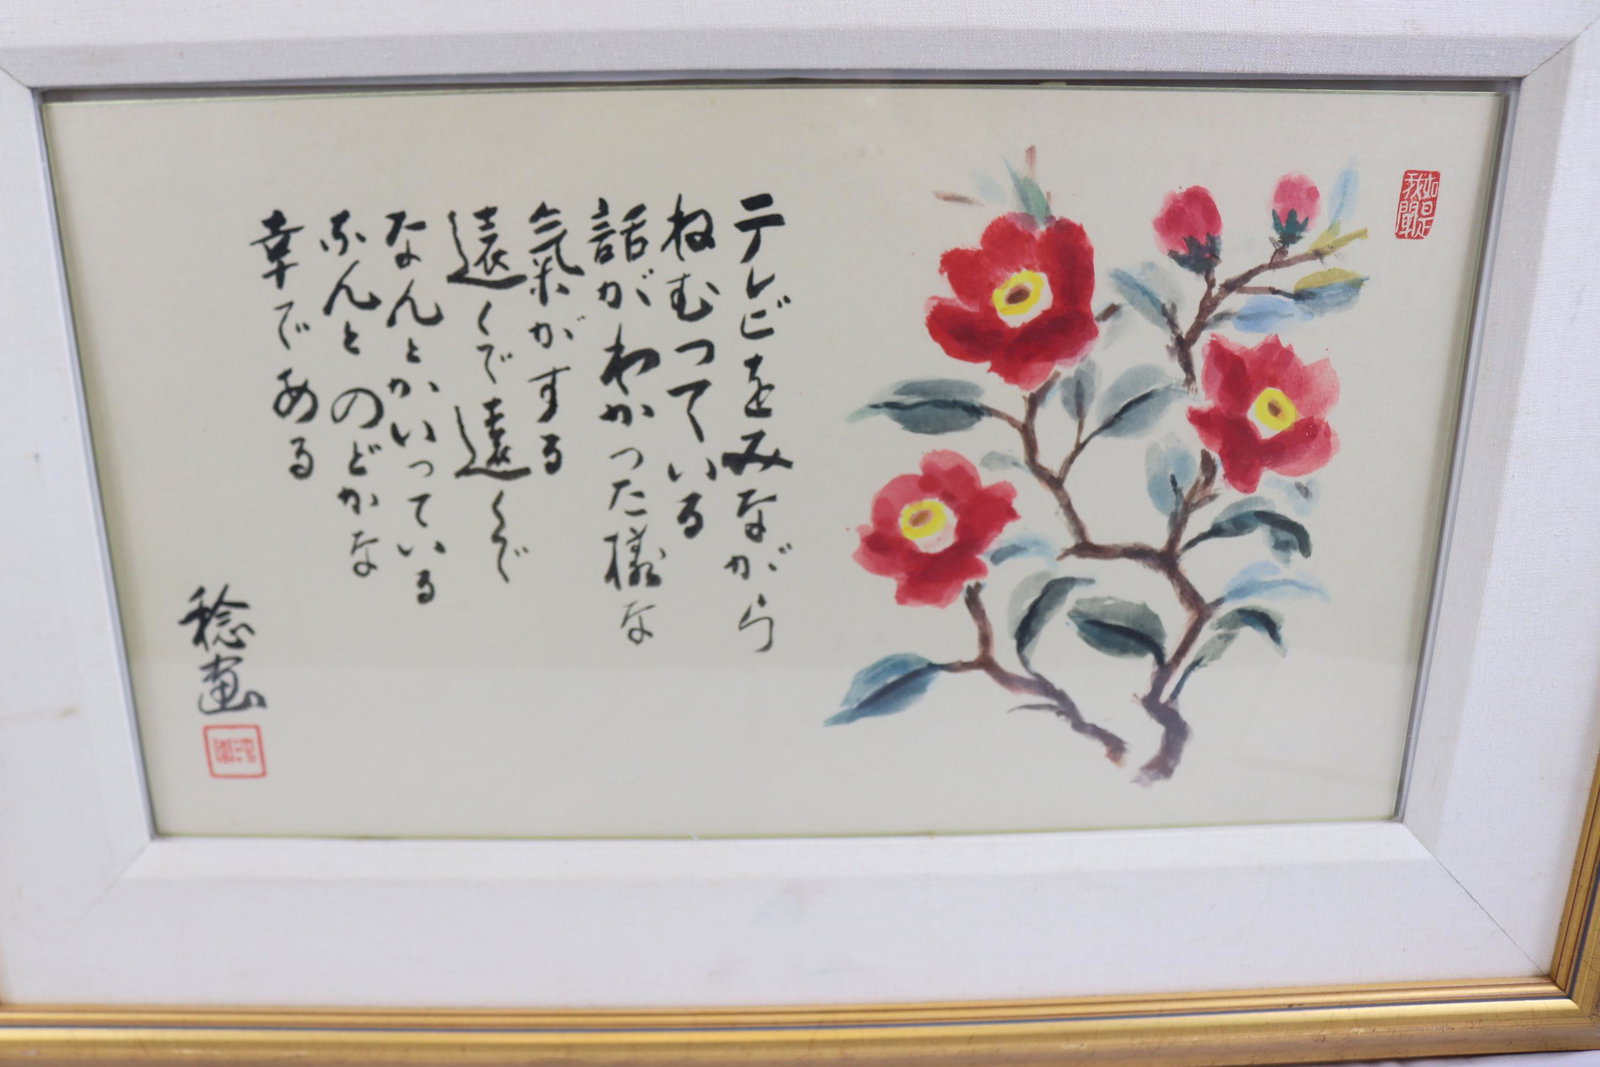 如是
我聞
テレビをみながら
ねむっている
話がわかった様な
氣がする
遠くで遠くで
なんとかいっている
なんとのどかな
幸である
稔画